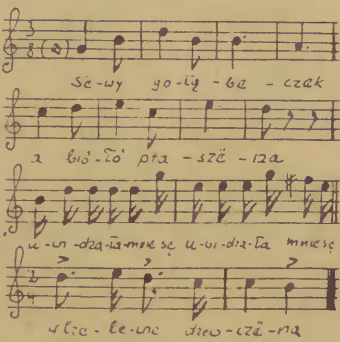 3 8 (2)
Së-wy go-łą-be-czek
a bió-łô pta-szë-iza
u-wi-dza-ła-mnie-sę u-wi-dza-ła mniesę
2 4
w lze-le-une dzew-czë-na